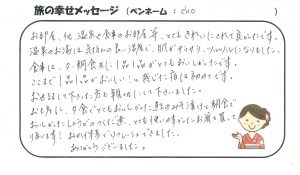 旅の幸せメッセージ (ペンネーム: cho )
お部屋、他 温泉や食事のお部屋等、とてもきれいにされて良かったです。
温泉のお湯は気持ちの良い温度で、肌がすべすべ、ツルツルになりました。
食事は、夕・朝朝食共に1品1品がとてもおいしかったです。
ここまで1品1品がおいしい！と感じた宿は初めてです。
お世話して下さった方も親切にして下さいました。
お土産に、夕食でとてもおいしかった みそ漬けと朝食で
おいしかった しょうがのつくだ煮、とても使いやすかったお箸を買って
帰ります！おかげ様でリフレッシュできました。
ありがとうございました。